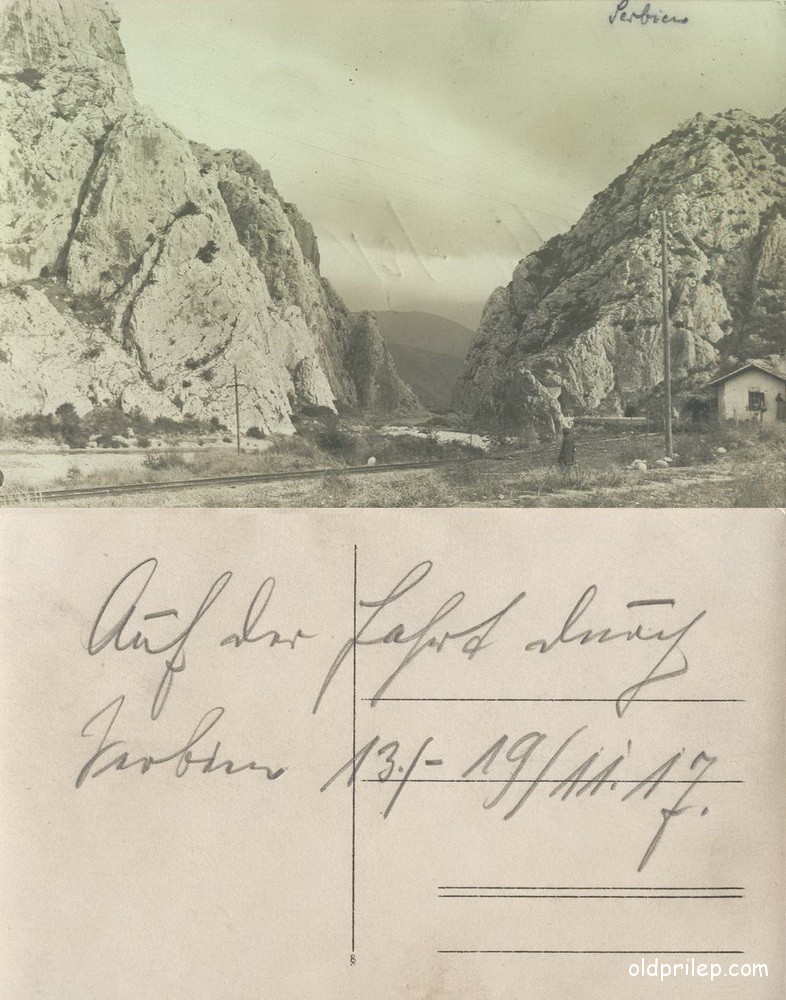 Serbien
Auf der Fahrt durch
Serbien 13./- 19/11.17.
8
oldprilep.com